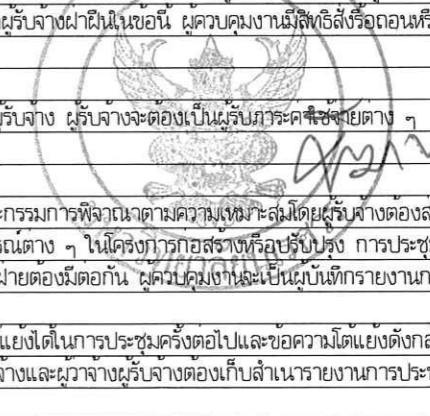 ผู้รับจ้างฝ่าฝืนในข้อนี้ ผู้ควบคุมงานมีสิทธิสั่งรื้อถอนหรื
ผู้รับจ้าง ผู้รับจ้างจะต้องเป็นผู้รับภาระค่าใช้จ่ายต่าง ๆ
ะกรรมการพิจาณาตามความเหมาะสมโดยผู้รับจ้างต้องส
รณ์ต่าง ๆ ในโครงการก่อสร้างหรือปรับปรุง การประชุ
ฝ่ายต้องมีต่อกัน ผู้ควบคุมงานจะเป็นผู้บันทึกรายงานก
แย้งได้ในการประชุมครั้งต่อไปและข้อความโต้แย้งดังกล
จ้างและผู้ว่าจ้างผู้รับจ้างต้องเก็บสำเนารายงานการประช